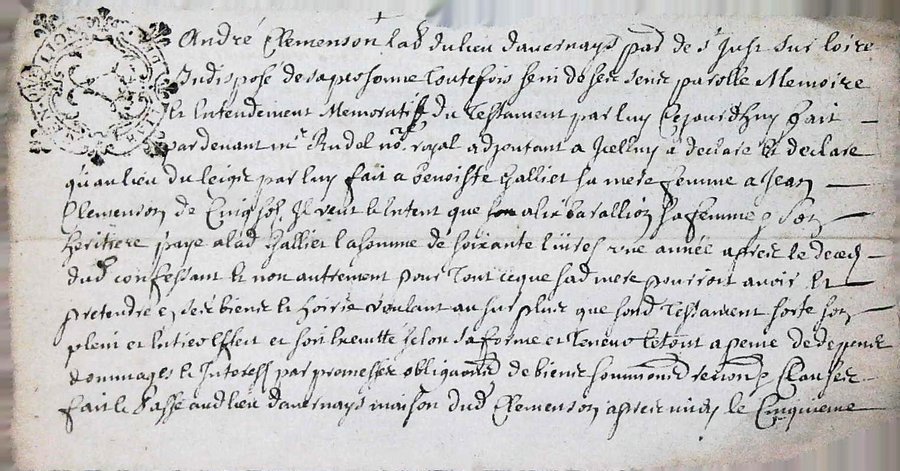 André Clemenson lab du lieu davernays par de st Just sur loire
Indispose de sa personne toutefois sein de ses sens parolle Memoire
et Entendement Memoratif du Testament par luy Cejourdhuy fait
pardevant mr Rudel nore royal adjoutant a Icelluy a declare et declare
quau lieu du leigs par luy fait a benoiste Galliet sa mere femme a Jean
Clemenson de il veut et entent que alix barallion sa femme et son
heritiere paye a lad Galliet la somme de soixante livres une année apres le deced
dud confessant et non autrement pour Tout ce que sad mere pourroit avoir et
pretendre en ses biens et hoirie voulant au surplus que sond Testament sorte son
plein et entier effect et soit execute selon sa forme et Teneur le tout a peine de depens
dommages et Interest par promesses obligaons de biens soummons renons et Clauses
fait et Passe aud lieu davernays maison dud Clemenson apres midy le Cinquieme